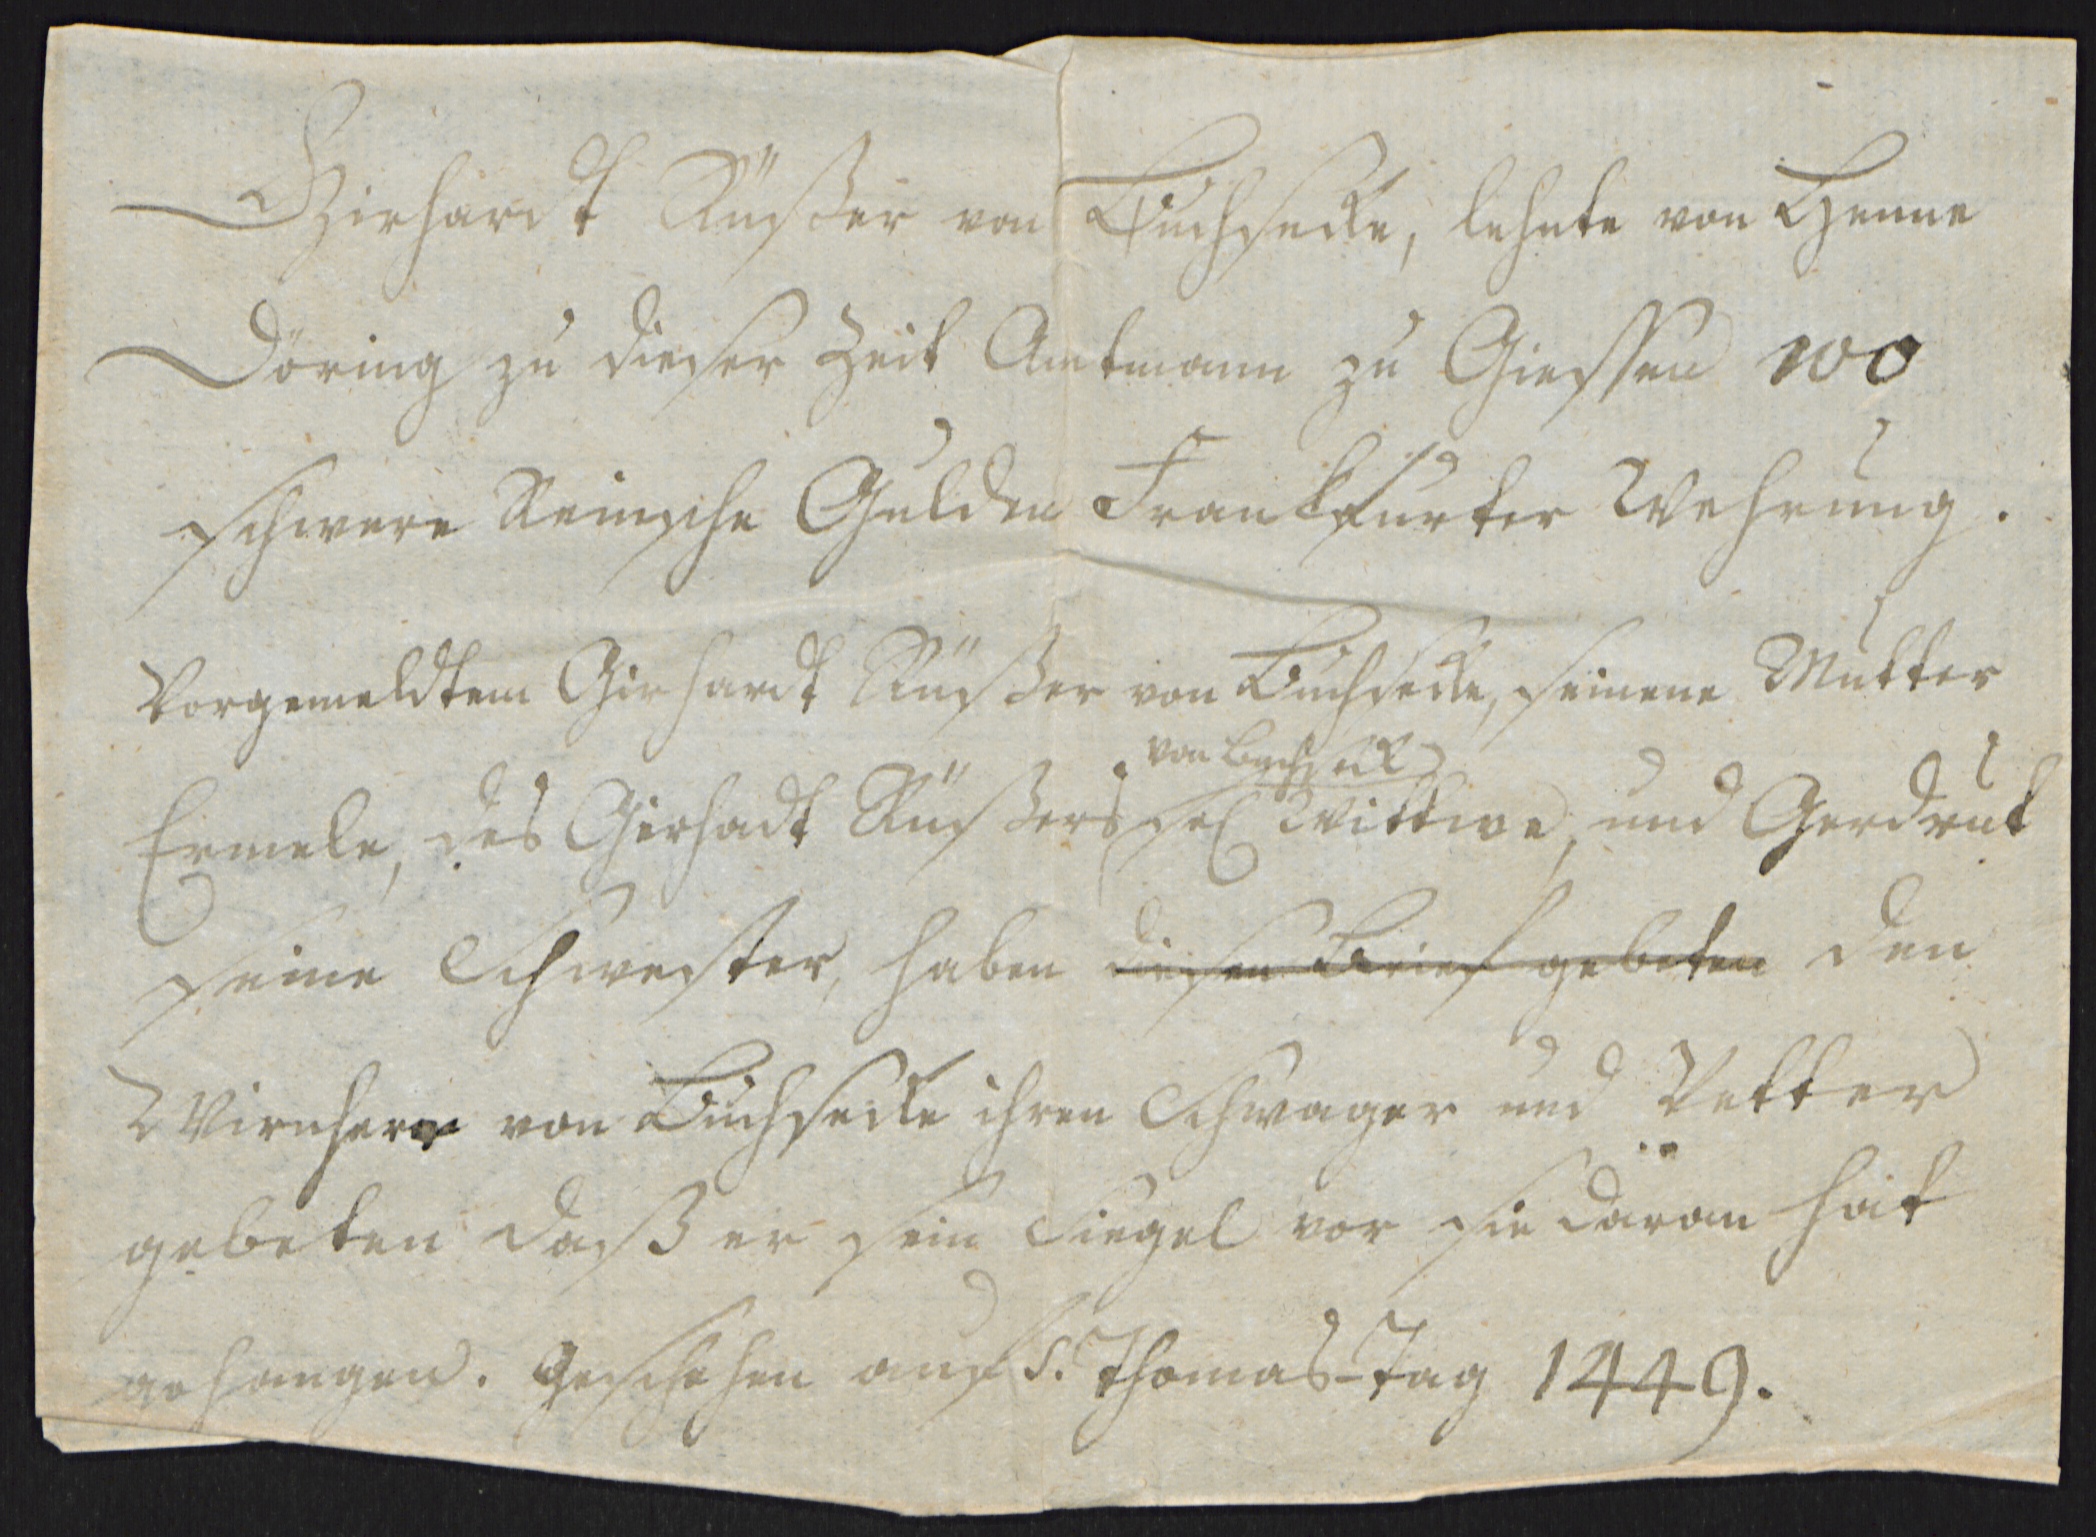 Girhardt Rüßer von Buchsecke, lehnte von Henne
Döring zu dieser Zeit Amtmann zu Giessen 100
schwere Reinsche Gulden Frankfurter Wehrung.
Vorgemeldtem Girhardt Rüßer von Buchsecke, seinene Mutter
von Buchseck
Ermele, des Girhadt Rüßers sel Wittwe, und Gerdrut
seine Schwester, haben diesen Brief gebeten den
Wirnherr von Buchsecke ihren Schwager und Vetter
gebeten daß er sein Siegel vor sie daran hat
gehangen. Geschehen auf S. Thomas-Tag 1449.